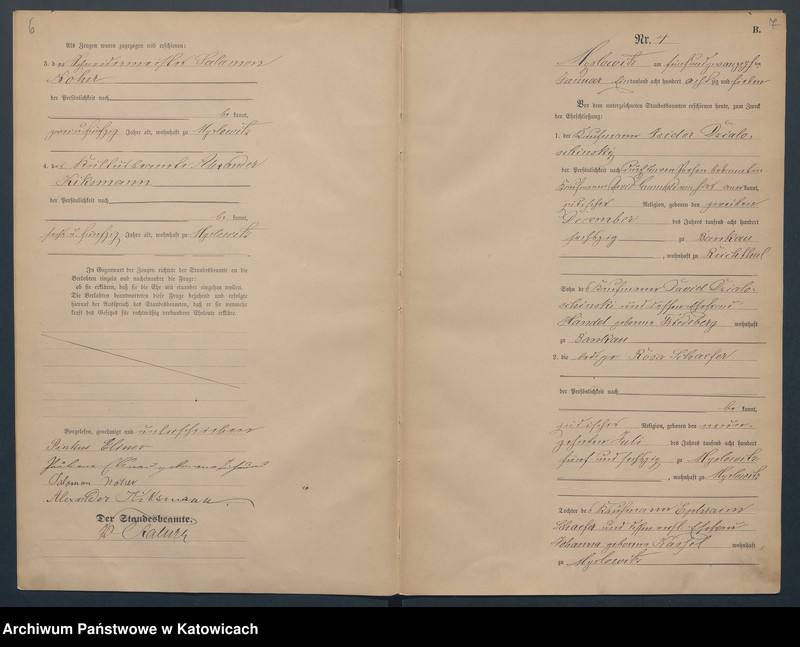 6
Als Zeugen waren zugezogen und erschienen:
3. der Schneidermeister Salamon
Köher
der Persönlichkeit nach
be kannt,
zwei u fünfzig Jahre alt, wohnhaft zu Myslowitz
4. der Kultusbeamte Alexander
Kiksmann
der Persönlichkeit nach
be kannt,
sechs u. fünfzig Jahre alt, wohnhaft zu Myslowitz
In Gegenwart der Zeugen richtete der Standesbeamte an die
Verlobten einzeln und nacheinander die Frage:
ob sie erklären, daß sie die Ehe mit einander eingehen wollen.
Die Verlobten beantworteten diese Frage bejahend und erfolgte
hierauf der Ausspruch des Standesbeamten, daß er sie nunmehr
kraft des Gesetzes für rechtmäßig verbundene Eheleute erkläre.
Vorgelesen, genehmigt und unterschrieben
Pinkus
geborene
Salamon Köher
Alexander Kiksmann
Der Standesbeamte.
7
B.
Nr. 4
Myslowitz am fünfundzwanzigsten
Januar eintausend acht hundert achtzig und sieben
Vor dem unterzeichneten Standesbeamten erschienen heute, zum Zweck
der Eheschließung:
1. der Kaufmann Isidor Dzialo-
schinski
der Persönlichkeit nach durch den Person bekannten
Kaufmann kannt,
jüdischer Religion, geboren den zweiten
December des Jahres tausend acht hundert
sechszig zu Bankau
, wohnhaft zu Reichthal
Sohn des Kaufmann David Dzialo-
schinski und dessen Ehefrau
Handel geborene Friedeberg wohnhaft
zu Bankau
2. die ledige Rosa Schaefer
der Persönlichkeit nach
be kannt,
jüdischer Religion, geboren den neun-
zehnten Juli des Jahres tausend acht hundert
fünf und sechszig zu Myslowitz
, wohnhaft zu Myslowitz
Tochter des Kaufmann Ephraim
Schaefer und dessen Ehefrau
Johanna geborene Kassel wohnhaft
zu Myslowitz
Archiwum Państwowe w Katowicach